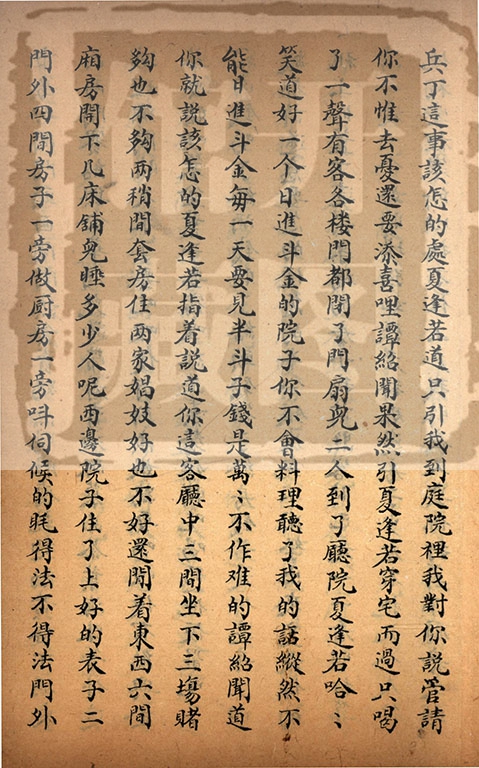 兵丁這事該怎的處夏逢若道只引我到庭院裡我對你説管請
你不惟去憂還要添喜哩譚紹聞果然引夏逢若穿宅而過只喝
了一聲有客各楼門都閉了門扇兒二人到了廳院夏逢若哈〻
笑道好一个日進斗金的院子你不會料理聽了我的話縱然不
能日進斗金每一天要見半斗子錢是萬〻不作难的譚紹聞道
你就説該怎的夏逢若指着説道你這客廳中三間坐下三塲賭
夠也不夠两稍間套房住两家娼妓好也不好還閒着東西六間
廂房開下几床鋪兒睡多少人呢西邊院子住了上好的表子二
門外四間房子一旁做厨房一旁叫伺候的毦得法不得法門外